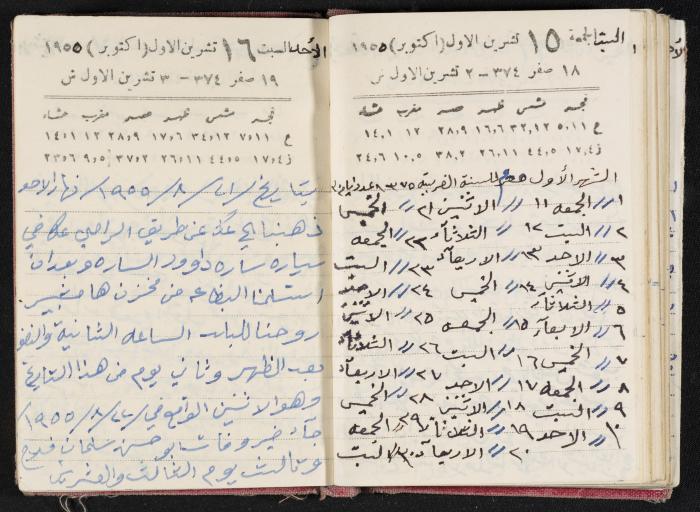 السبت الجمعة ١٥ تشرين الاول (اكتوبر) ١٩٥٥
١٨ صفر ٣٧٤ – ٢ تشرين الاول ش
فجر شمس ظهر عصر مغرب عشاء
ع ٥،١١ ٣٢،١٢ ١٦،٦ ٢٨،٩ ١٢ ١٤،١
ز ١٧،٤ ٤٤،٥ ٢٦،١١ ٣٨،٢ ١٠،٥ ٢٤،٦
الشهر الأول للسنة القمرية ٣٧٥
١ // الجمعه ١١ // الاثنين ٢١ // الخميس
٢ // السبت ١٢ // الثلاثاء ٢٢ // الجمعه
٣ // الاحد ١٣ // الاربعاء ٢٣ // السبت
٤ // الاثنين ١٤ // الخميس ٢٤ // الاحد
٥ // الثلاثاء
٦ // الاربعاء ١٥ // الجمعه ٢٥ // الاثنين
٧ // الخميس ١٦ // السبت ٢٦ // الثلاثاء
٨ // الجمعه ١٧ // الاحد ٢٧ // الاربعاء
٩ // السبت ١٨ // الاثنين ٢٨ // الخميس
١٠ // الاحد ١٩ // الثلاثاء ٢٩ // الجمعه
٢٠ // الاربعاء ٣٠ // السبت
الأحد السبت ١٦ تشرين الاول (اكتوبر) ١٩٥٥
١٩ صفر ٣٧٤ – ٣ تشرين الاول ش
فجر شمس ظهر عصر مغرب عشاء
ع ٧،١١ ٣٤،١٢ ١٧،٦ ٢٨،٩ ١٢ ١٤،١
ز ١٧،٤ ٤٤،٥ ٢٦،١١ ٣٧،٢ ٩،٥ ٢٣،٦
بتاريخ /٢١/ ٨/ ١٩٥٥/ نهار الاحد
ذهبنا عكا عن طريق الرامي عكا في
سياره ساره داوود الساره وبعد ان
استلمنا البظاعه من مخزن هامشبير
روحنا للبلد الساعه الثانية والنصف
بعد الظهر وثاني يوم من هذا التاريخ
وهو الاثنين الواقع في /٢٢/ ٨/ ١٩٥٥/
جاء خبر وفات بو حسن سلمان فرج
وثالث يوم الثالث والعشرين